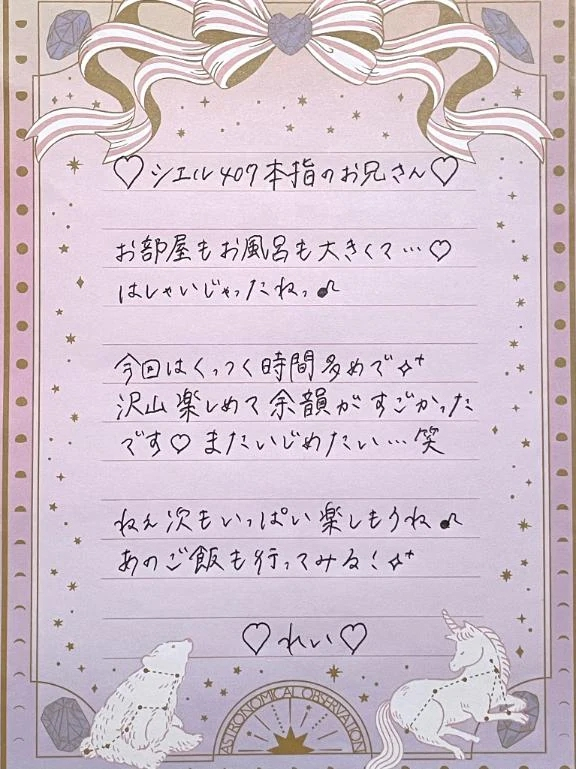 ♡シエル407本指のお兄さん♡
お部屋もお風呂も大きくて…♡
はしゃいじゃったねっ♪
今回はくっつく時間多めで✧⁺
沢山楽しめて余韻がすごかった
です♡またいじめたい…笑
ねぇ次もいっぱい楽しもうね♪
あのご飯も行ってみる！✧⁺
♡れい♡
ASTRONOMICAL OBSERVATION